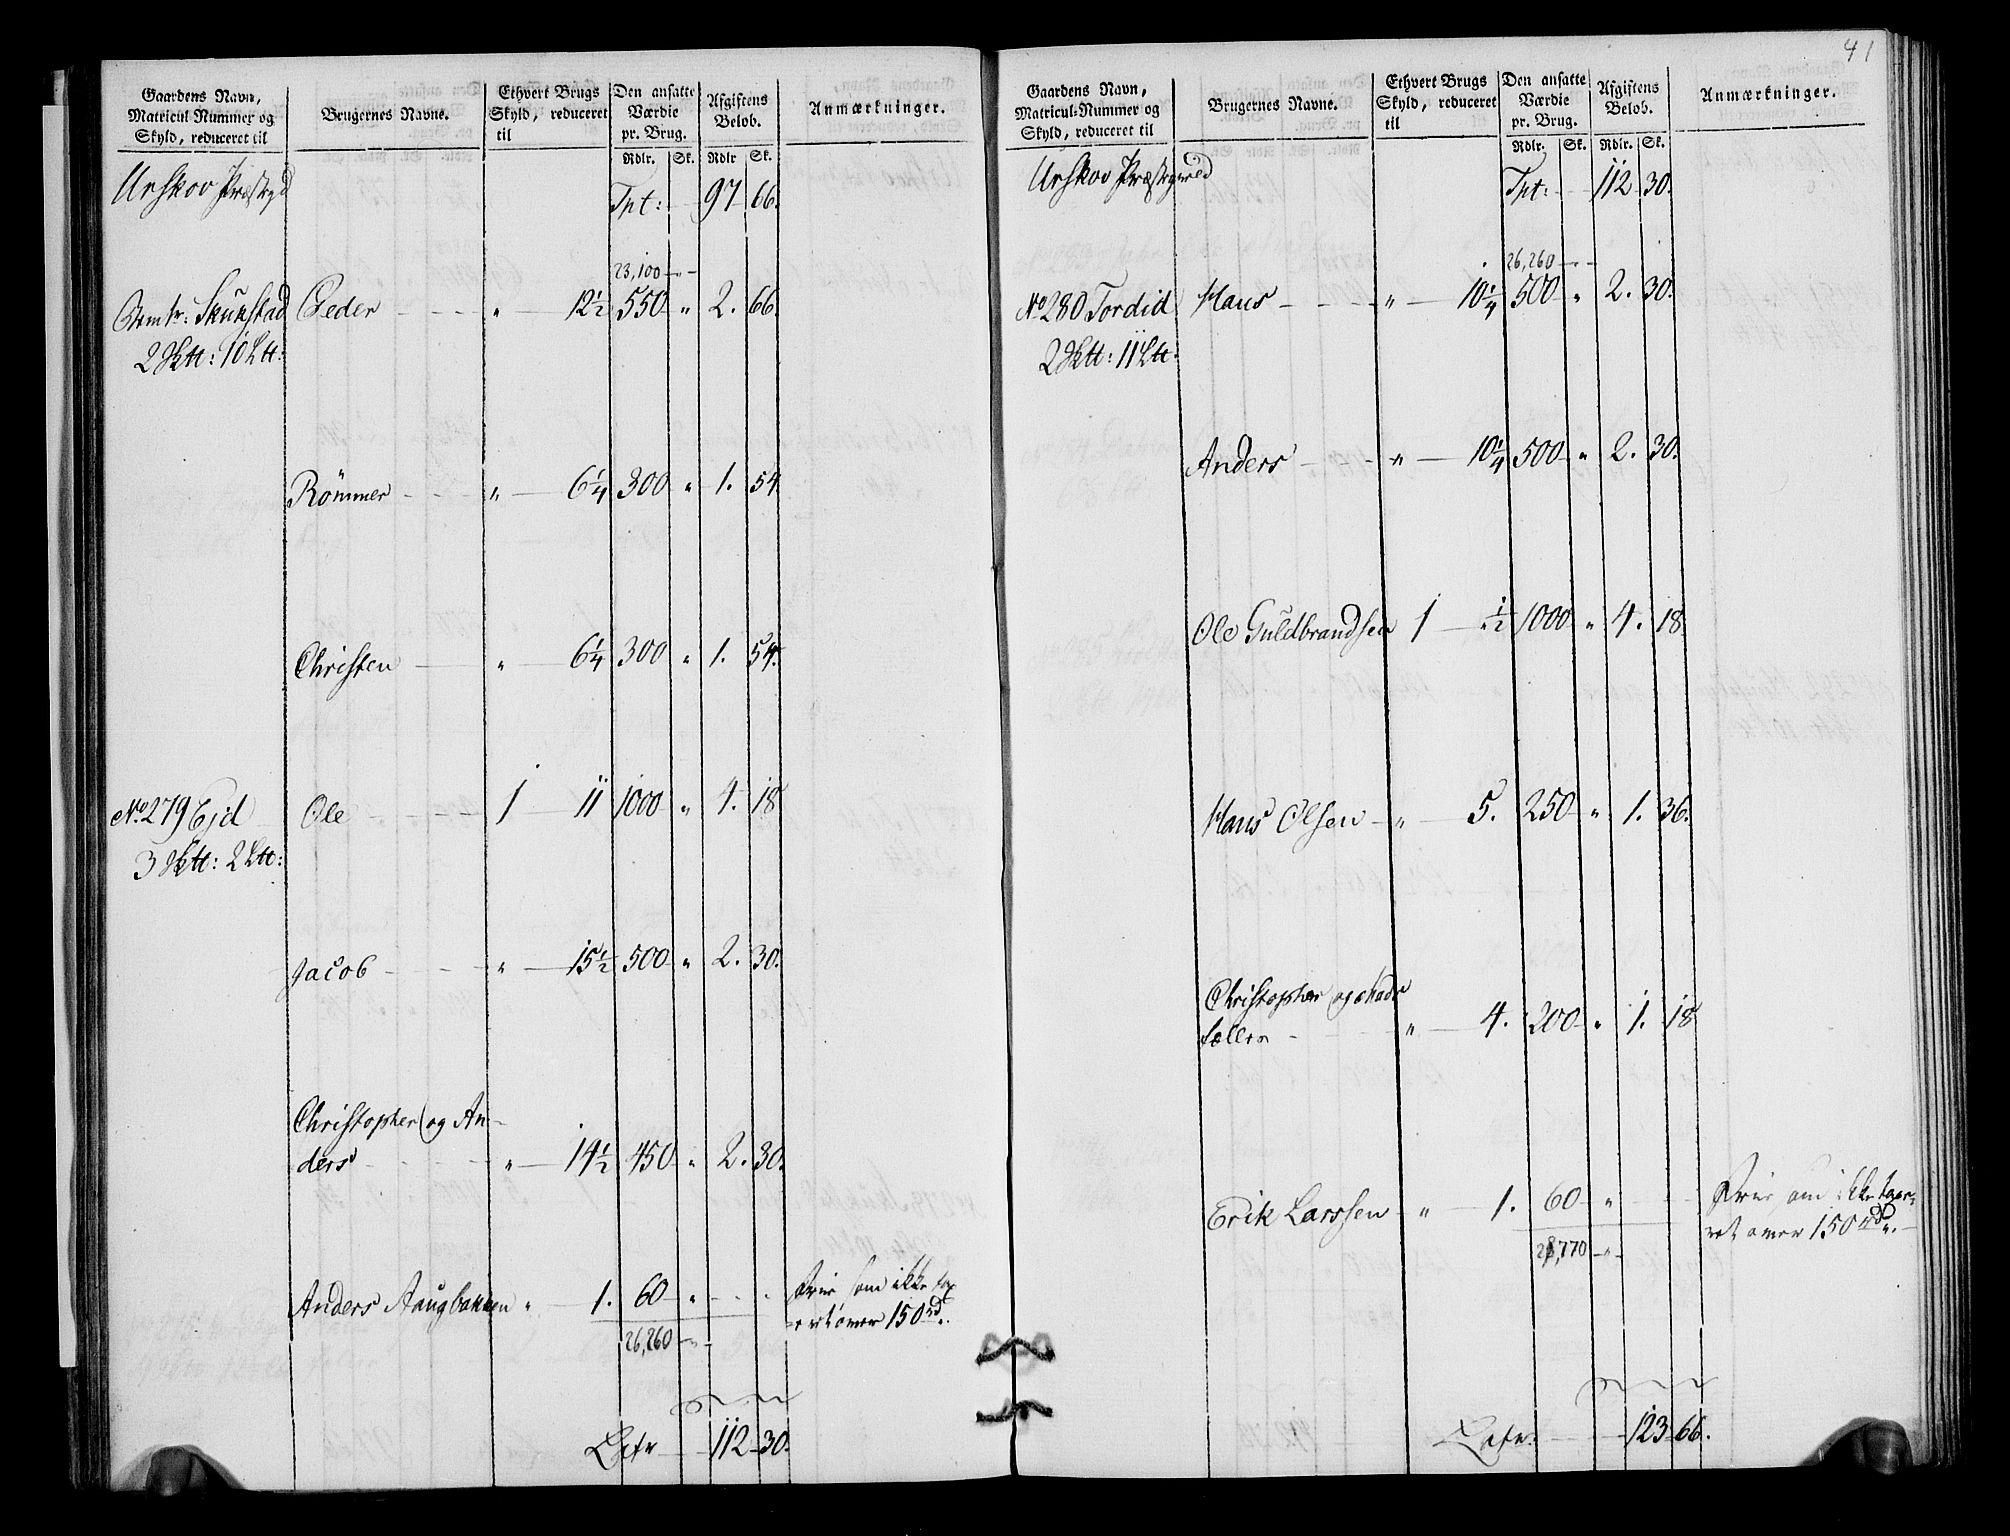 Gaardens Navn,
Matricul Nummer og
Skyld, reduceret til
Brugernes Navne.
Ethvert Brugs
Skyld, reduceret
til
Den ansatte
Værdie
pr. Brug.
Rdlr. Sk.
Afgiftens
Beløb.
Rdlr Sk.
Anmærkninger.
Urskov Præstegd
Tpt: 97 66.
23,100 - " -
Oemtr: Skukstad Peder - - - - " - 12½ 550 " 2. 66.
2 Sktt: 10 Ltt:
Römmer - - - " - 6¼ 300 " 1. 54
Christen - " - 6¼ 300 " 1. 54.
No. 279 Ejd Ole - - - - 1 - 11 1000 " 4. 18
3 Sktt: 2 Ltt:
Jacob - - - - " - 15½ 500 " 2. 30.
Christopher og An-
ders - - - - " - 14½ 450 " 2. 30.
Anders Aaugbakken " - 1. 60 " - - . Frie som ikke tax-
eret over 150 rd.
26,260 - " -
Lafr 112 30.
41
Gaardens Navn,
Matricul-Nummer og
Skyld, reduceret til
Brugernes Navne.
Ethvert Brugs
Skyld, reduceret
til
Den ansatte
Værdie
pr. Brug.
Rdlr. Sk.
Afgiftens
Beløb.
Rdlr. Sk.
Anmærkninger.
Urskov Præstegield
Tpt: - - 112 30.
26,260 - " -
No. 280 Tordid Hans - - - - " - 10¼ 500 " 2. 30.
2 Sktt: 11 Ltt:
Anders - - - " - 10¼ 500 " 2. 30.
Ole Guldbrandsen 1 - "½ 1000 " 4. 18.
Hans Olsen - " - 5. 250 " 1. 36.
Christopher og Mads
fælles - - - " - 4. 200 " 1. 18
Erik Larssen " - 1. 60 " - - Frie som ikke taxe-
ret over 150 rd.
28,770 - " -
Lafr: - - 123 66.